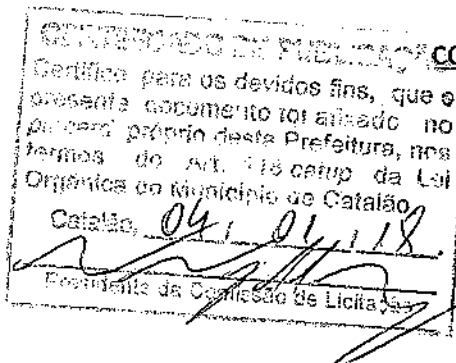 CERTIFICADO DE PUBLICAÇÃO CO
Certifico para os devidos fins, que o
presente documento foi afixado no
placard próprio desta Prefeitura, nos
termos do Art. 118 caput da Lei
Orgânica do Município de Catalão
Catalão, 04, 01, 18.
Presidente da Comissão de Licitação